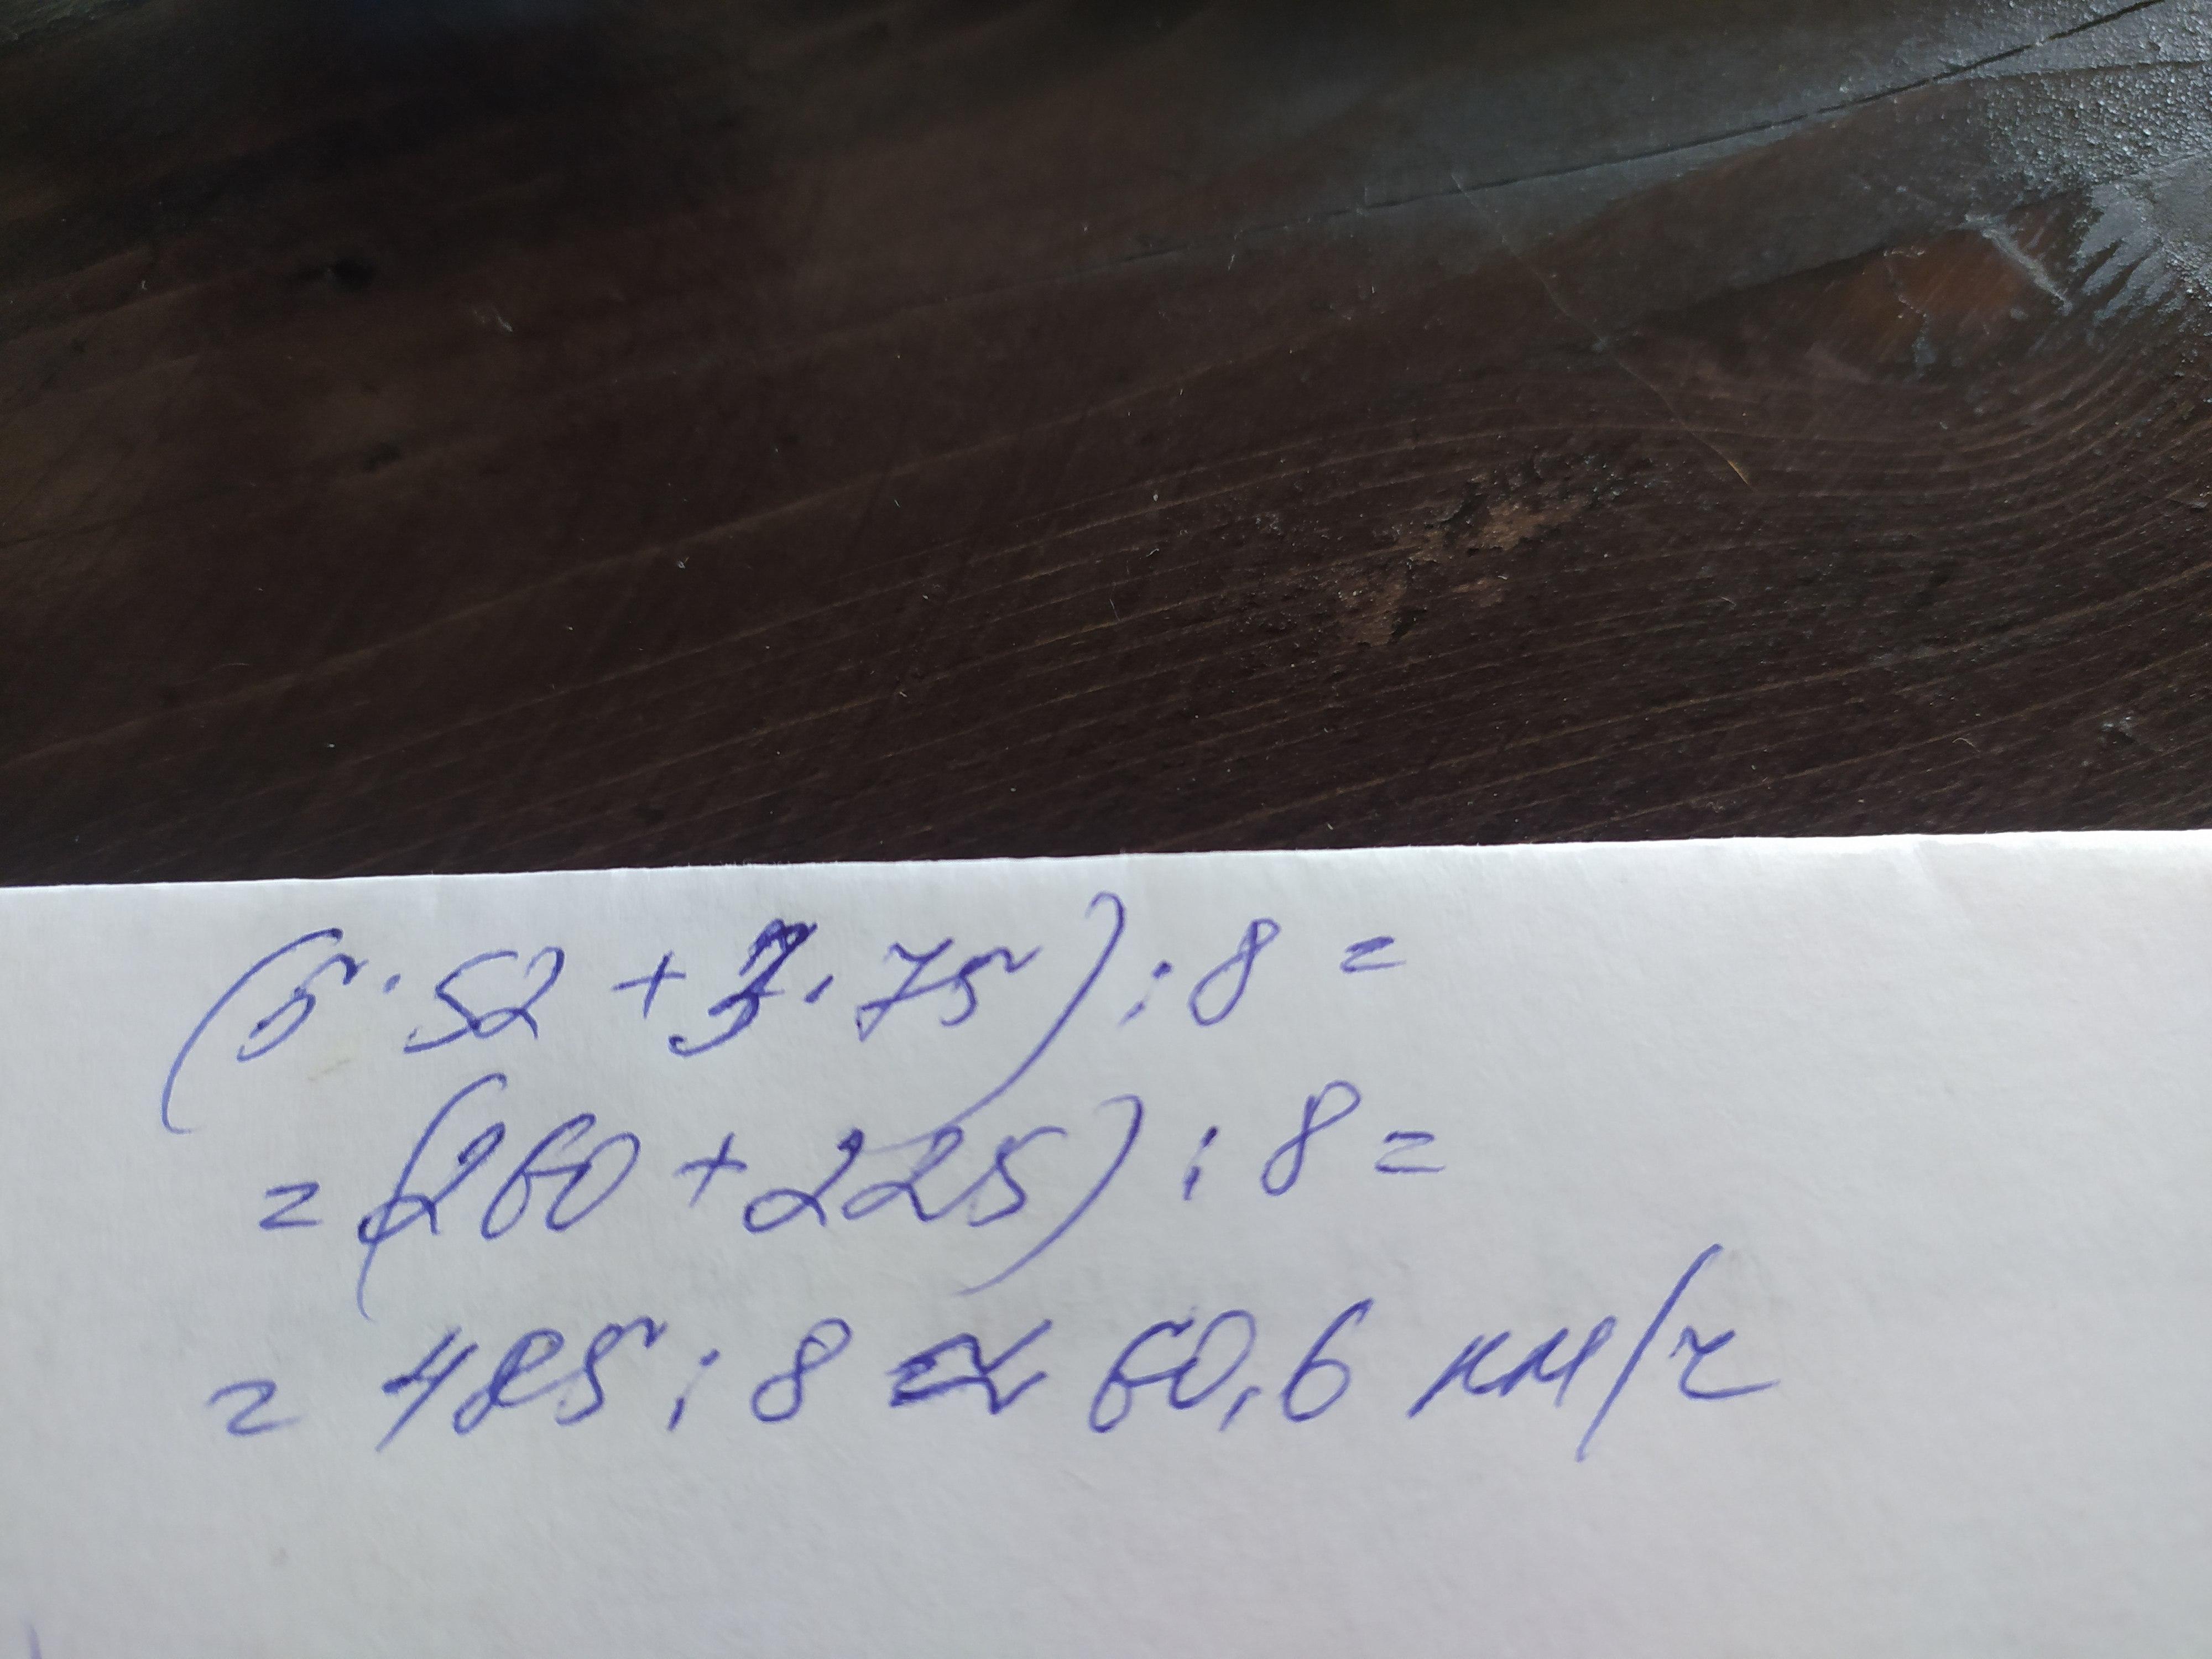 (5·52 + 3·75) : 8 =
= (260 + 225) : 8 =
= 485 : 8 ≈ 60,6 км/ч